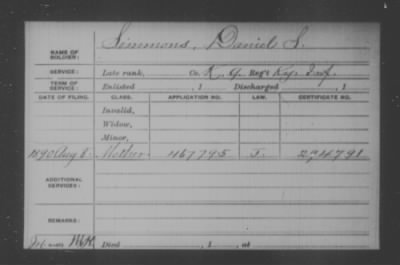 NAME OF SOLDIER: Simmons, Daniel S.
SERVICE: Late rank, Co. K, 9 Reg't Ky. Inf.
TERM OF SERVICE: Enlisted , 1 Discharged , 1
DATE OF FILING. CLASS. APPLICATION NO. LAW. CERTIFICATE NO.
Invalid,
Widow,
Minor,
1890 Aug 8 Mother 467795 274791
ADDITIONAL SERVICES:
REMARKS:
Died , 1 , at